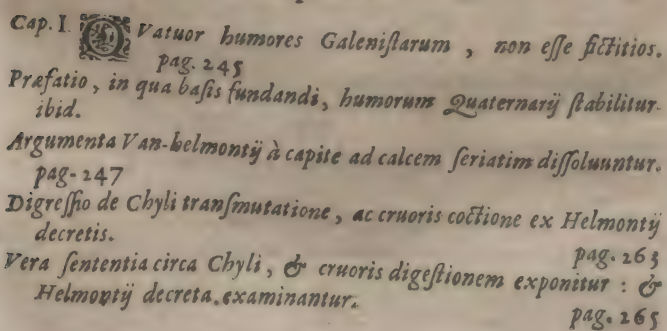 Cap. I. QVatuor humores Galeniſtarum, non eſſe fictitios.
pag. 245
Præfatio, in qua baſis fundandi, humorum Quaternarij ſtabilitur.
ibid.
Argumenta Van-helmontij à capite ad calcem ſeriatim diſſoluuntur.
pag. 247
Digreſſio de Chyli tranſmutatione, ac cruoris coctione ex Helmontij
decretis.
pag. 263
Vera ſententia circa Chyli, & cruoris digeſtionem exponitur: &
Helmontij decreta examinantur.
pag. 265